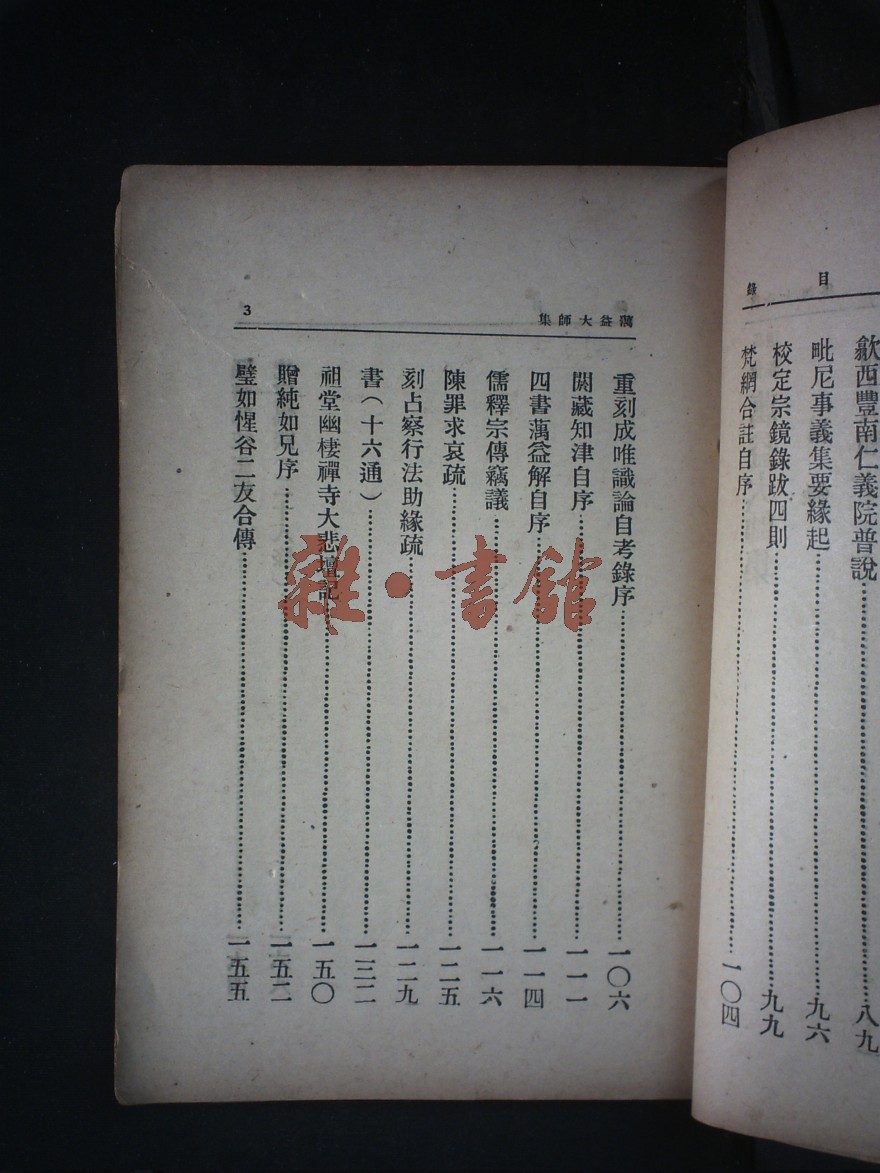 目錄
歙西豐南仁義院普說……八九
毗尼事義集要緣起……九六
校定宗鏡錄跋四則……九九
梵網合註自序……一〇四
蕅益大師集
3
重刻成唯識論自考錄序……一〇六
閱藏知津自序……一一一
四書蕅益解自序……一一四
儒釋宗傳竊議……一一六
陳罪求哀疏……一二五
刻占察行法助緣疏……一二九
書(十六通)……一三二
祖堂幽棲禪寺大悲壇記……一五〇
贈純如兄序……一五二
璧如惺谷二友合傳……一五五
雜·書館